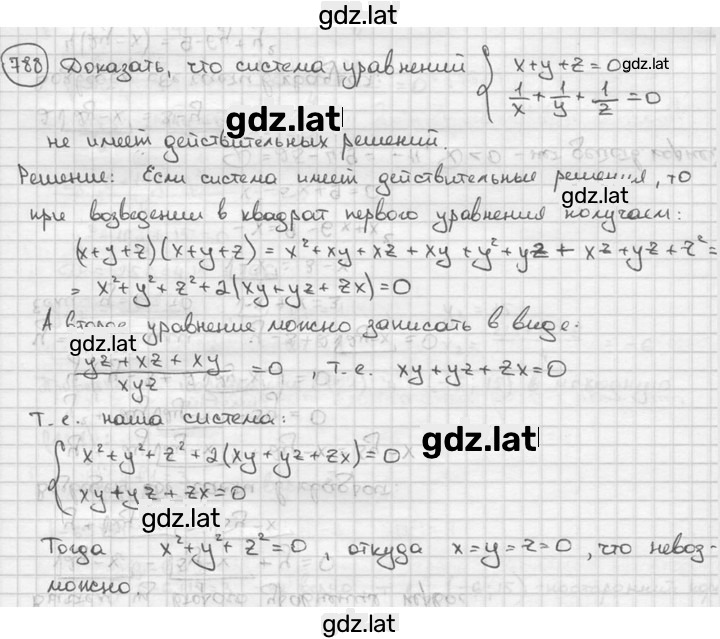 gdz.lat
788 Доказать, что система уравнений { x+y+z=0 gdz.lat
1/x + 1/y + 1/z = 0
gdz.lat
не имеет действительных решений.
Решение: Если система имеет действительные решения, то
gdz.lat
при возведении в квадрат первого уравнения получаем:
(x+y+z)(x+y+z) = x²+xy+xz+xy+y²+yz+xz+yz+z²=
= x²+y²+z²+2(xy+yz+zx)=0
А второе уравнение можно записать в виде:
gdz.lat
(yz+xz+xy)/(xyz) = 0, т.е. xy+yz+zx=0
Т.е. наша система:
{ x²+y²+z²+2(xy+yz+zx)=0
gdz.lat
xy+yz+zx=0
gdz.lat
Тогда x²+y²+z²=0, откуда x=y=z=0, что невоз-
можно.
gdz.lat